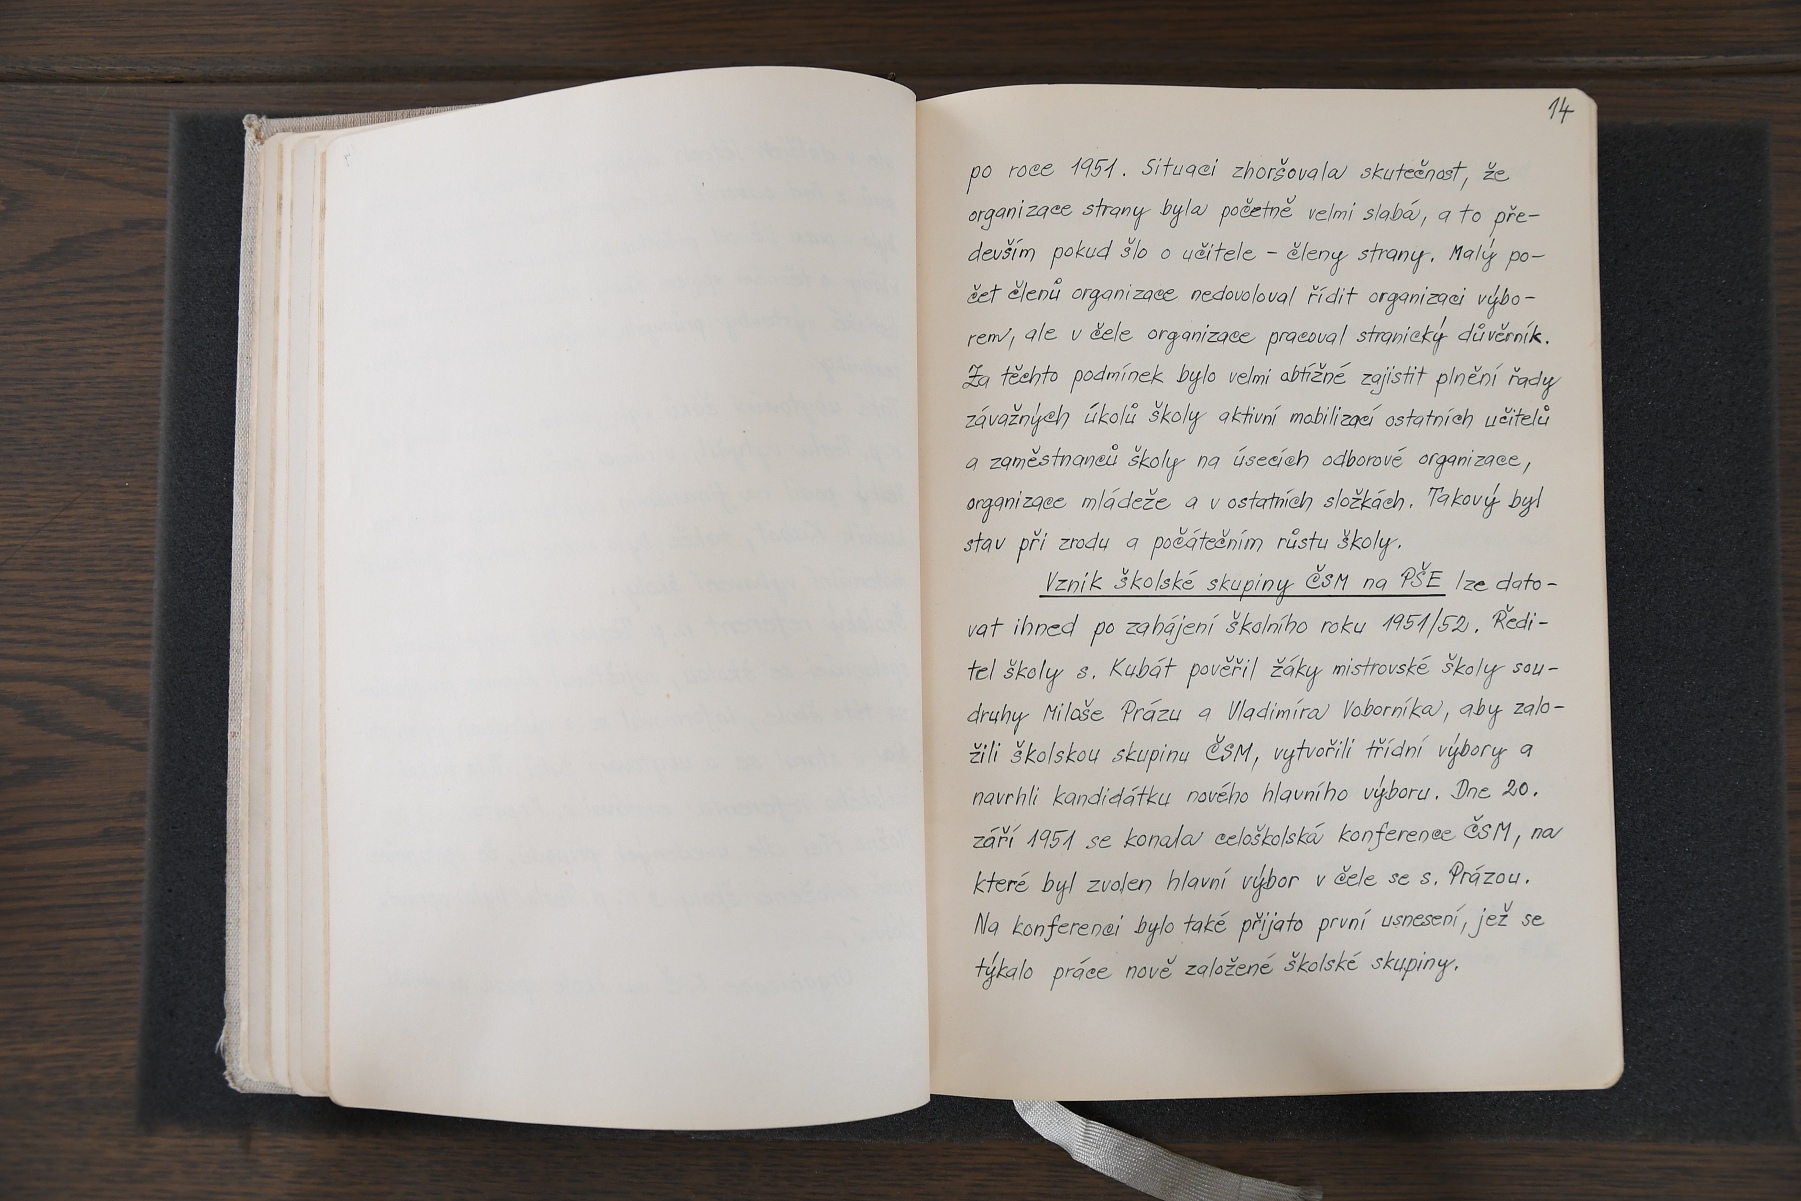 14
po roce 1951. Situaci zhoršovala skutečnost, že
organizace strany byla početně velmi slabá, a to pře-
devším pokud šlo o učitele - členy strany. Malý po-
čet členů organizace nedovoloval řídit organizaci výbo-
rem, ale v čele organizace pracoval stranický důvěrník.
Za těchto podmínek bylo velmi obtížné zajistit plnění řady
závažných úkolů školy aktivní mobilizací ostatních učitelů
a zaměstnanců školy na úsecích odborové organizace,
organizace mládeže a v ostatních složkách. Takový byl
stav při zrodu a počátečním růstu školy.
Vznik školské skupiny ČSM na PŠE lze dato-
vat ihned po zahájení školního roku 1951/52. Ředi-
tel školy s. Kubát pověřil žáky mistrovské školy sou-
druhy Miloše Prázu a Vladimíra Voborníka, aby zalo-
žili školskou skupinu ČSM, vytvořili třídní výbory a
navrhli kandidátku nového hlavního výboru. Dne 20.
září 1951 se konala celoškolská konference ČSM, na
které byl zvolen hlavní výbor v čele se s. Prázou.
Na konferenci bylo také přijato první usnesení, jež se
týkalo práce nově založené školské skupiny.